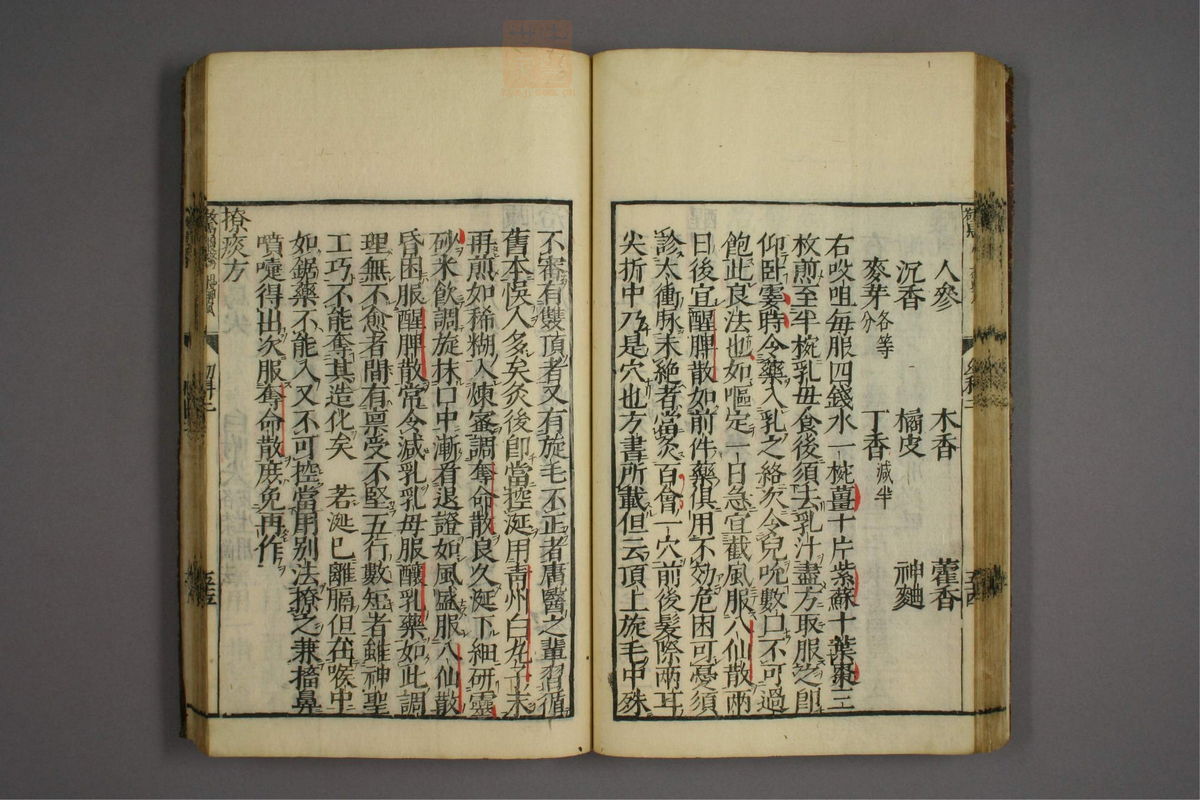 人參　木香　藿香
沉香　橘皮　神麯
麥芽各等分　丁香減半
右㕮咀每服四錢水一椀薑十片紫蘇十葉棗三
枚煎至半椀乳母食後須去乳汁盡方取服之即
仰臥霎時令藥入乳之絡次令兒吮數口不可過
飽此良法也如嘔定一日急宜截風服八仙散兩
日後宜醒脾散如前件藥俱用不効危困可憂須
診太衝脉未絶者當灸百會一穴前後髮際兩耳
尖折中乃是穴也方書所載但云頂上旋毛中殊
不審有雙頂者又有旋毛不正者庸醫之輩習循
舊本悞人多矣灸後即當控涎用青州白丸子末
再煎如稀糊入煉蜜調奪命散良久涎下細研靈
砂米飲調旋抹口中漸看退證如風盛服八仙散
昏困服醒脾散常令減乳乳母服釀乳藥如此調
理無不愈者間有禀受不堅五行數短者雖神聖
工巧不能奪其造化矣　若涎已離膈但在喉中
如鋸藥不能入又不可控當用別法撩之兼搐鼻
噴嚏得出次服奪命散庶免再作
撩痰方